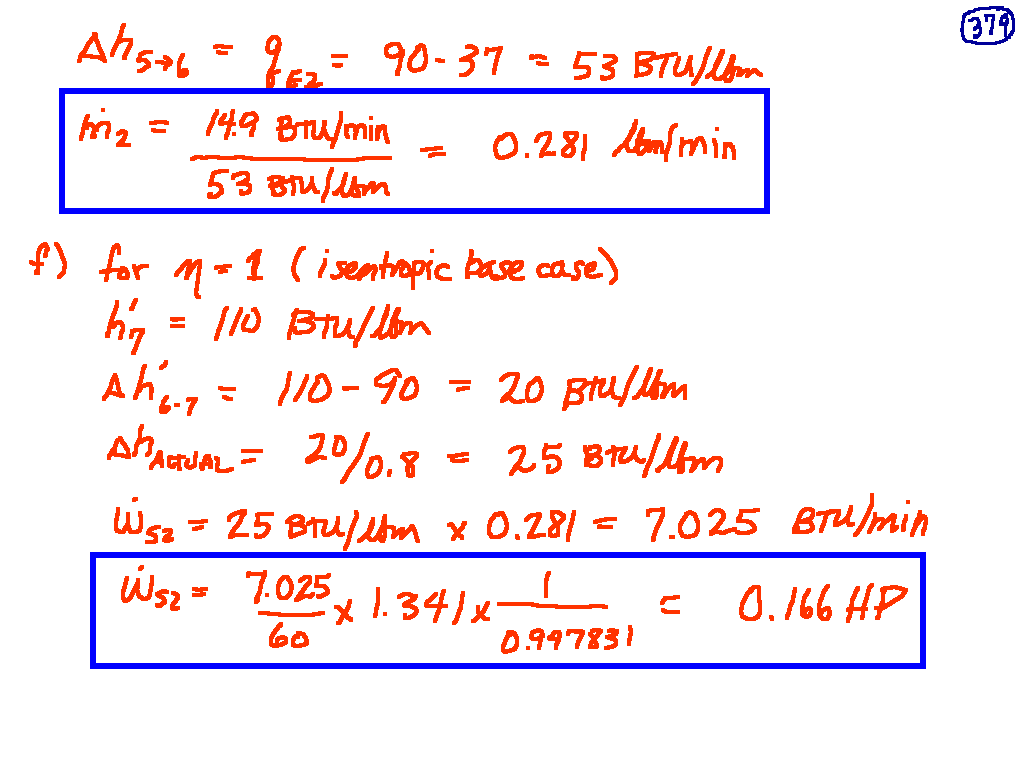 379
Δh5→6 = qE2 = 90-37 = 53 BTU/lbm
ṁ2 = 14.9 BTU/min / 53 BTU/lbm = 0.281 lbm/min
f) for η = 1 (isentropic base case)
h'7 = 110 BTU/lbm
Δh'6-7 = 110-90 = 20 BTU/lbm
ΔhACTUAL = 20/0.8 = 25 BTU/lbm
Ẇs2 = 25 BTU/lbm x 0.281 = 7.025 BTU/min
Ẇs2 = 7.025/60 x 1.341 x 1/0.947831 = 0.166 HP